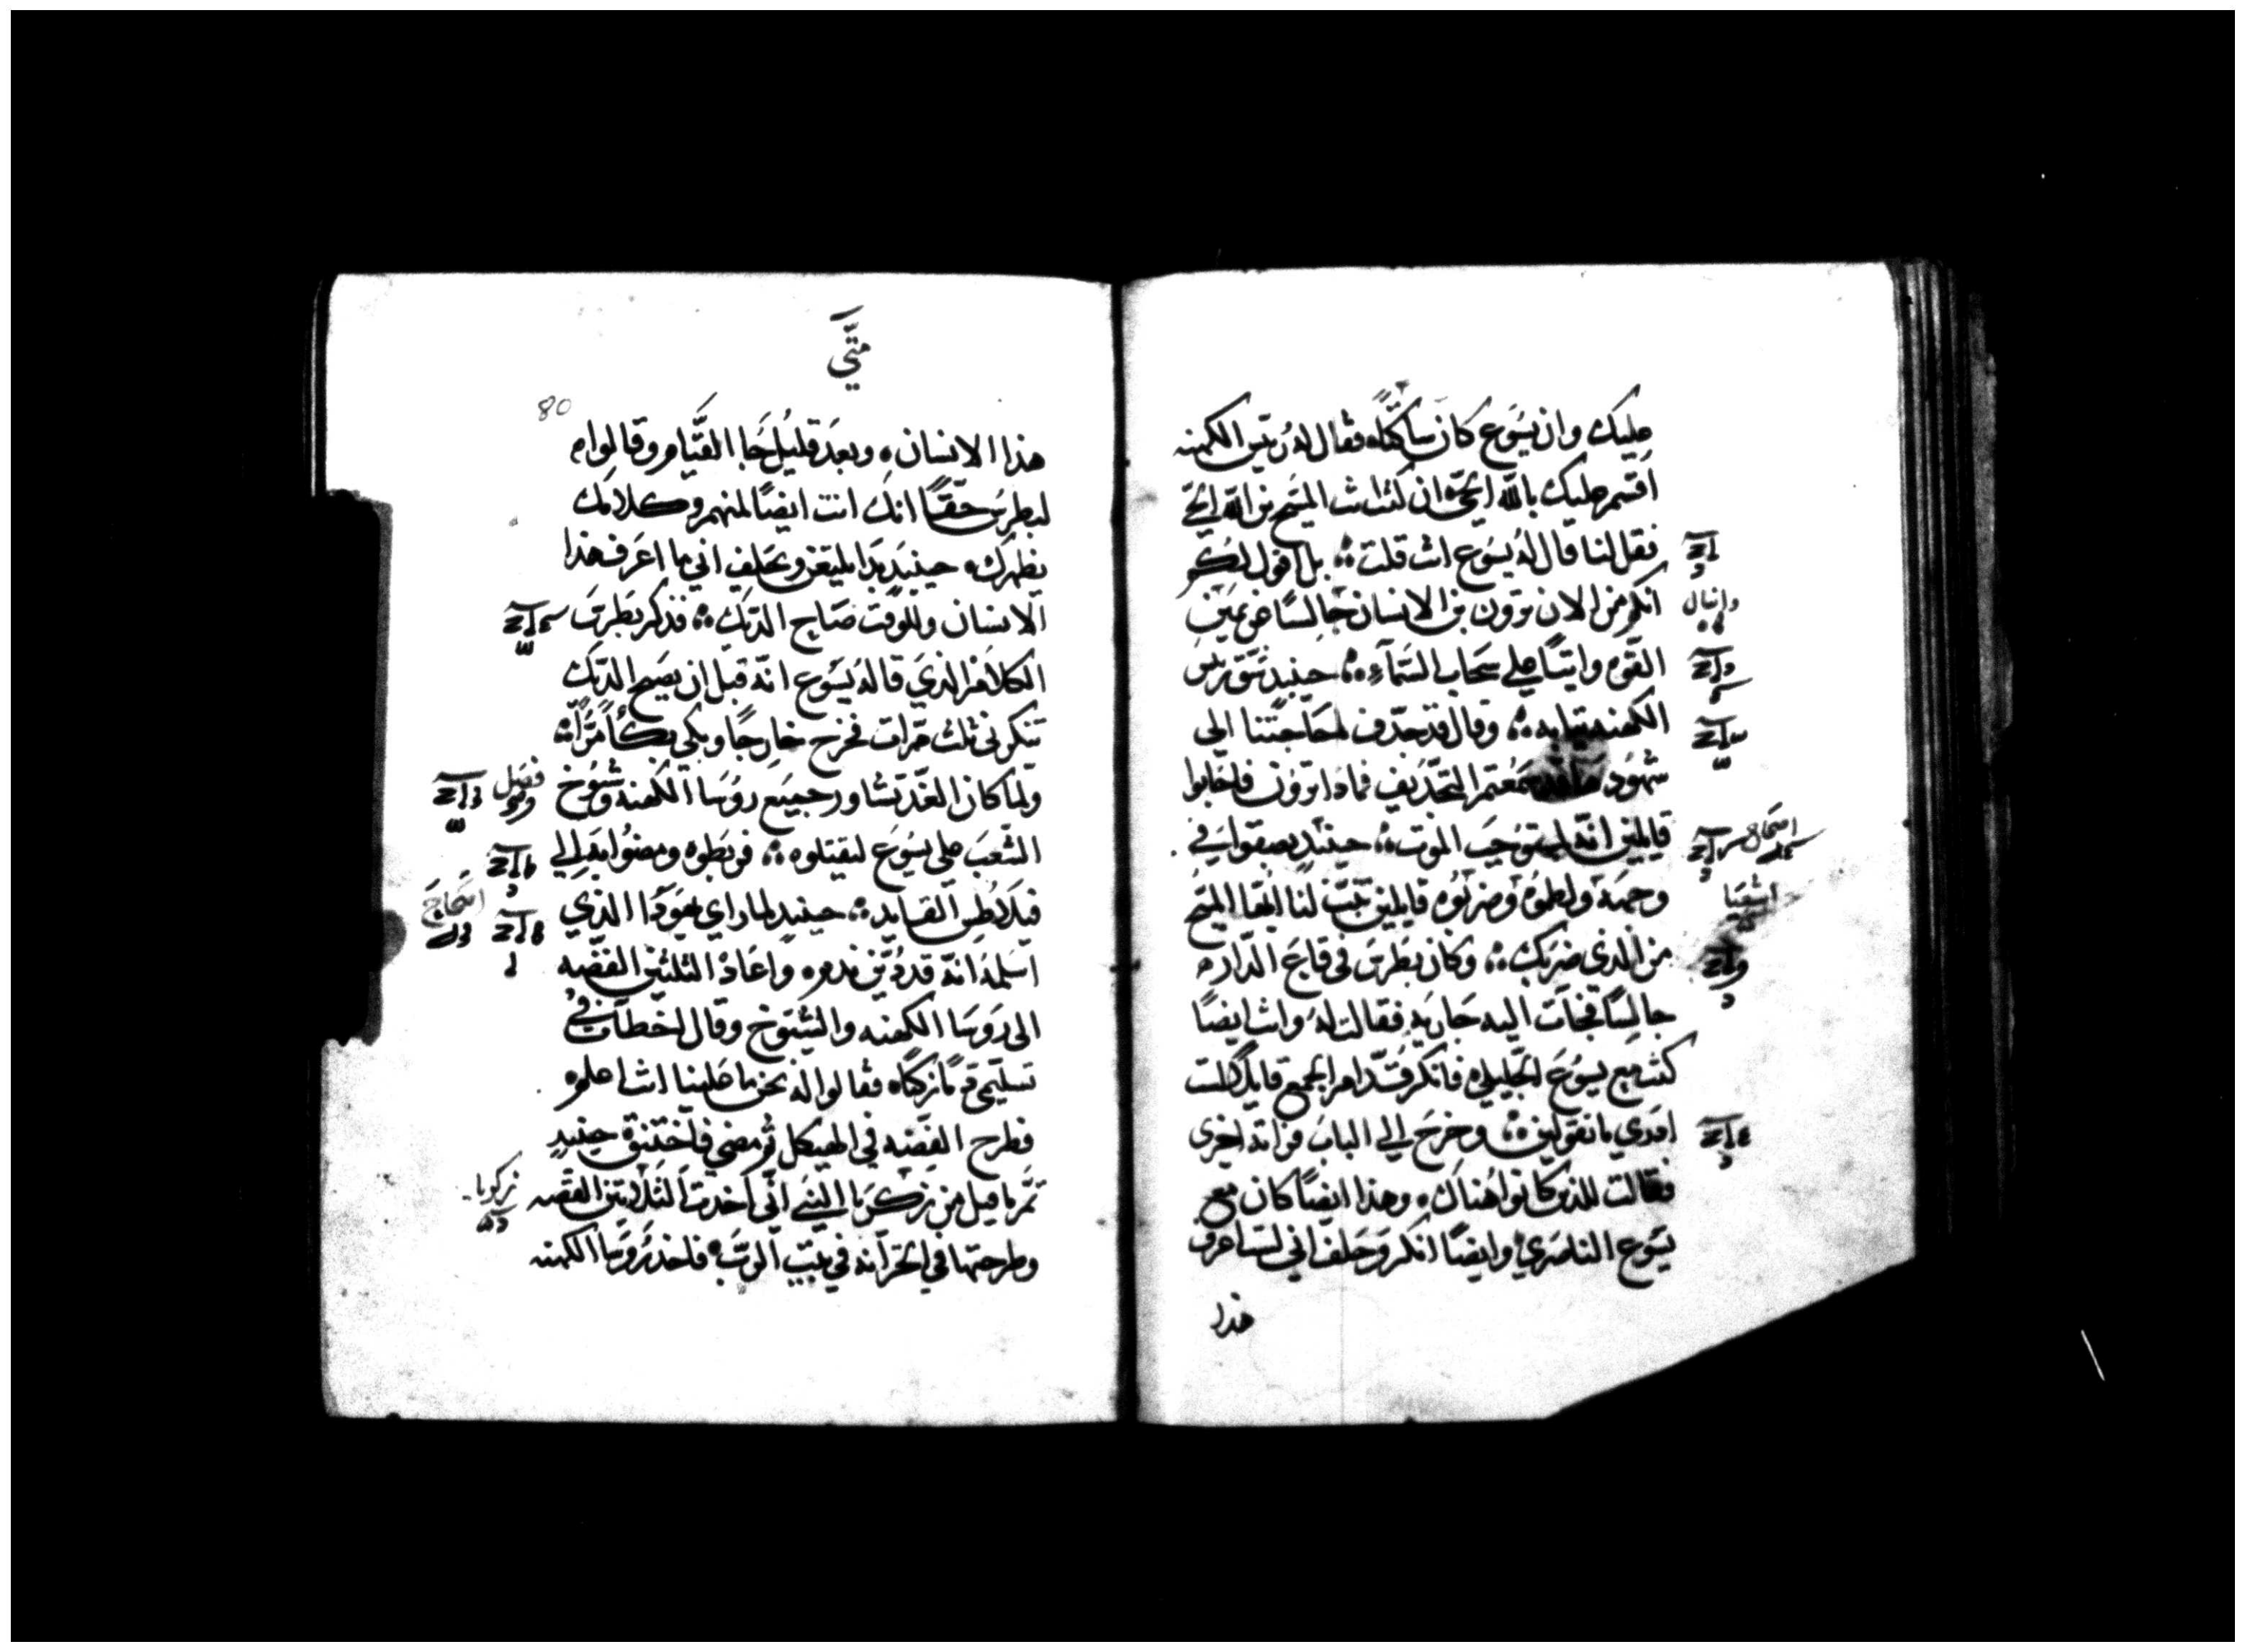 عليك وان يسوع كان ساكتًا فقال له ريس الكهنه
اقسم عليك بالله الحي ان كنت انت المسيح بن الله الحي
فقل لنا قال له يسوع انت قلت بل اقول لكم
انكم من الان ترون بن الانسان جالسًا عن يمين
القوه واتيًا على سحاب السماء حينيد شق ريس
الكهنه تيابه وقال قد جدف لحاجتنا الى
شهود سمعتم التجديف فمادا ترون فاجابوا
قايلين انه لمستوجب الموت حينيد بصقوا في
وجهه ولطموه وضربوه قايلين تنب لنا ايها المسيح
من الدي ضربك وكان بطرس في قاع الدار
جالسًا فجات اليه جاريه فقالت له وانت ايضًا
كنت مع يسوع الجليلي فانكر قدام الجميع قايلًا لست
ادري ما تقولين وخرج الى الباب فراته اخرى
فقالت للدين كانوا هناك وهدا ايضًا كان مع
يسوع الناصري وايضًا انكر وحلف اني لست اعرف
هدا
دانيال
اشعيا
متى
80
هدا الانسان وبعد قليل جا القيام وقالوا
لبطرس حقًا انك انت ايضًا منهم وكلامك
يظهرك حينيد بدا يلعن ويحلف اني ما اعرف هدا
الانسان وللوقت صاح الديك فدكر بطرس
الكلام الدي قاله يسوع انه قبل ان يصيح الديك
تنكرني تلت مرات فخرج خارجًا وبكى بكاً مرًا
ولما كان الغد تشاور جميع روسا الكهنه وشيوخ
الشعب على يسوع ليقتلوه فربطوه ومضوا به الى
فيلاطس القايد حينيد لما راي يهودا الدي
اسلمه انه قد دين ندم واعاد التلتين الفضه
الى روسا الكهنه والشيوخ وقال اخطات في
تسليمي دمًا زكيًا فقالوا له نحن ما علينا انت اعلم
فطرح الفضه في الهيكل ثم مضى فاختنق حينيد
تم ما قيل من زكريا النبي اني اخدت التلاتين الفضه
وطرحتها في الخزانه في بيت الرب فاخد روسا الكهنه
فصل
زكريا